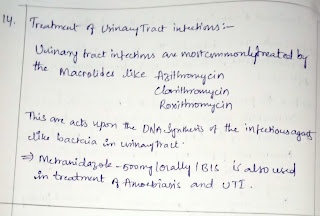 14. Treatment of Urinary Tract infections:-
Urinary tract infections are most commonly treated by
the Macrolides like Azithromycin
Clarithromycin
Roxithromycin
This are acts upon the DNA Synthesis of the infectious agents
like bacteria in urinary tract.
⇒ Metranidazole - 500mg/orally/BIS is also used
in treatment of Amoebiasis and UTI.